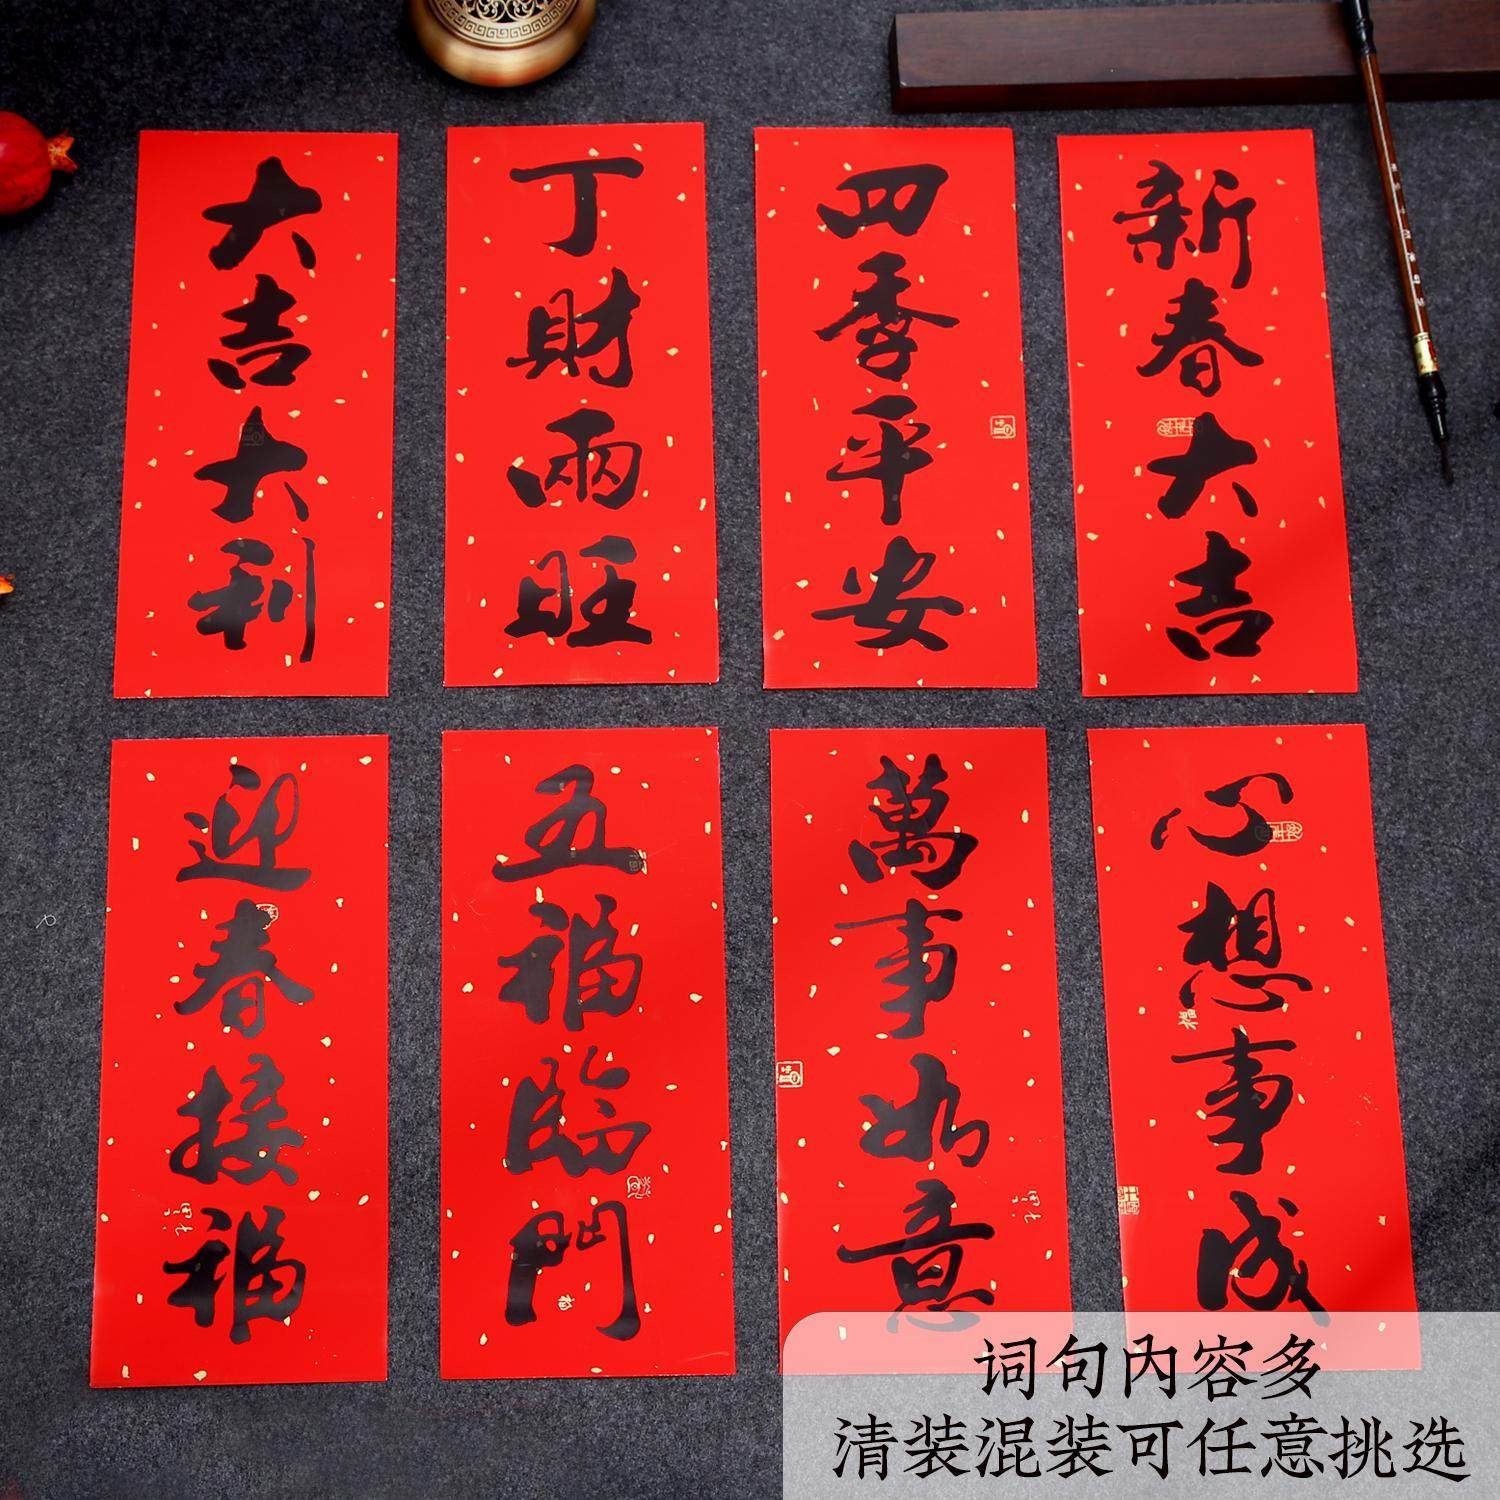 大吉大利
丁財兩旺
四季平安
新春大吉
迎春接福
五福臨門
萬事如意
心想事成
词句内容多
清装混装可任意挑选